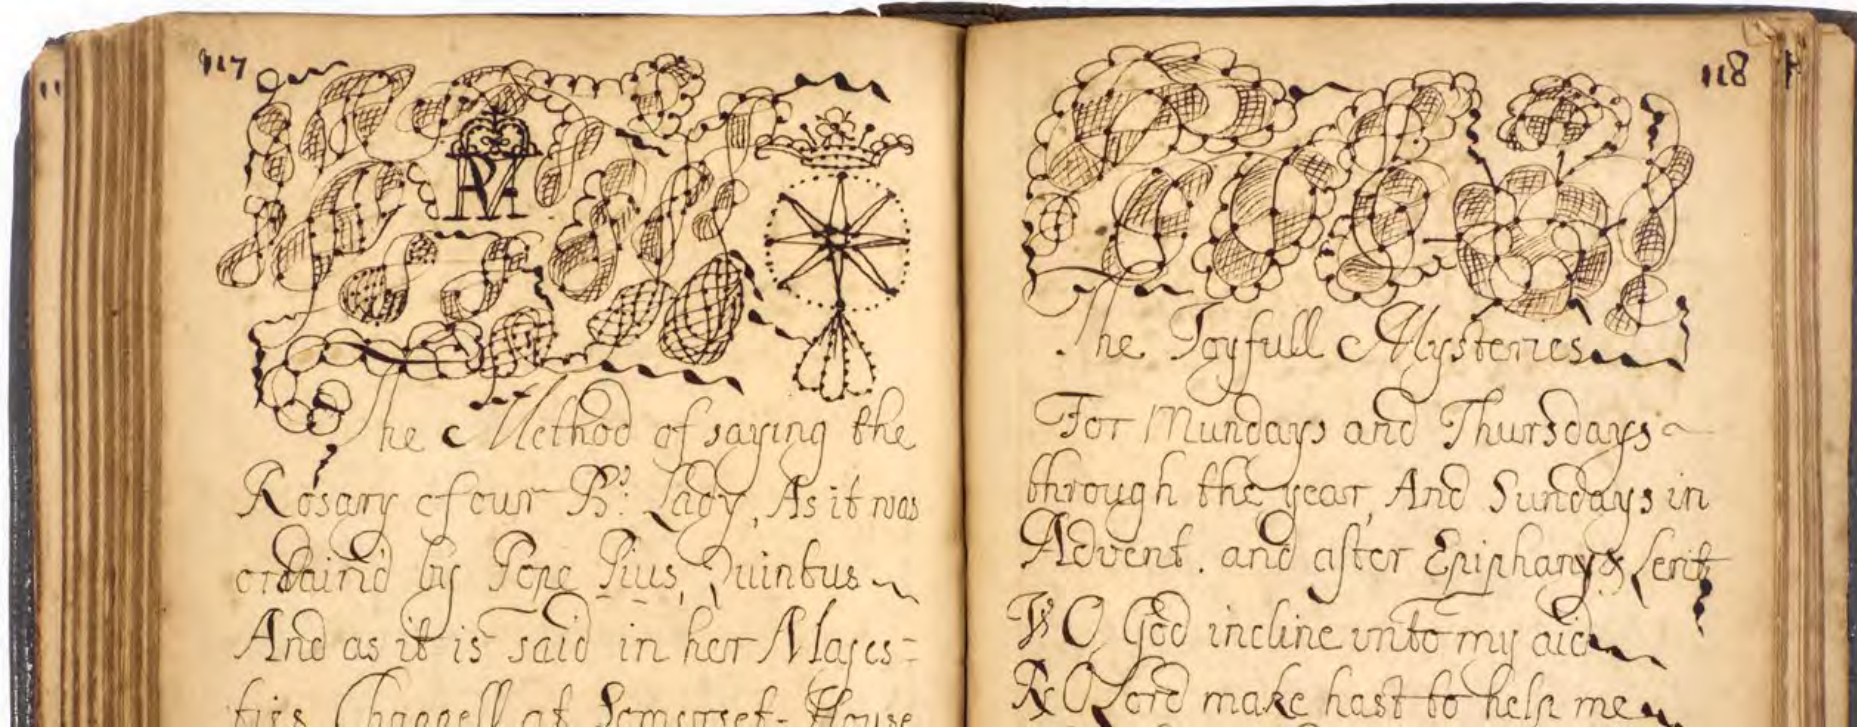 117
The Method of saying the
Rosary of our B:s Lady, As it was
ordaind by Pope Pius, Quintus
And as it is said in her Majes=
ties Chappell at Somerset-House
118
The Joyfull Mysteries
For Mundays and Thursdays
through the year, And Sundays in
Advent. and after Epiphany & Lent
V O God incline unto my aid
R O Lord make hast to help me